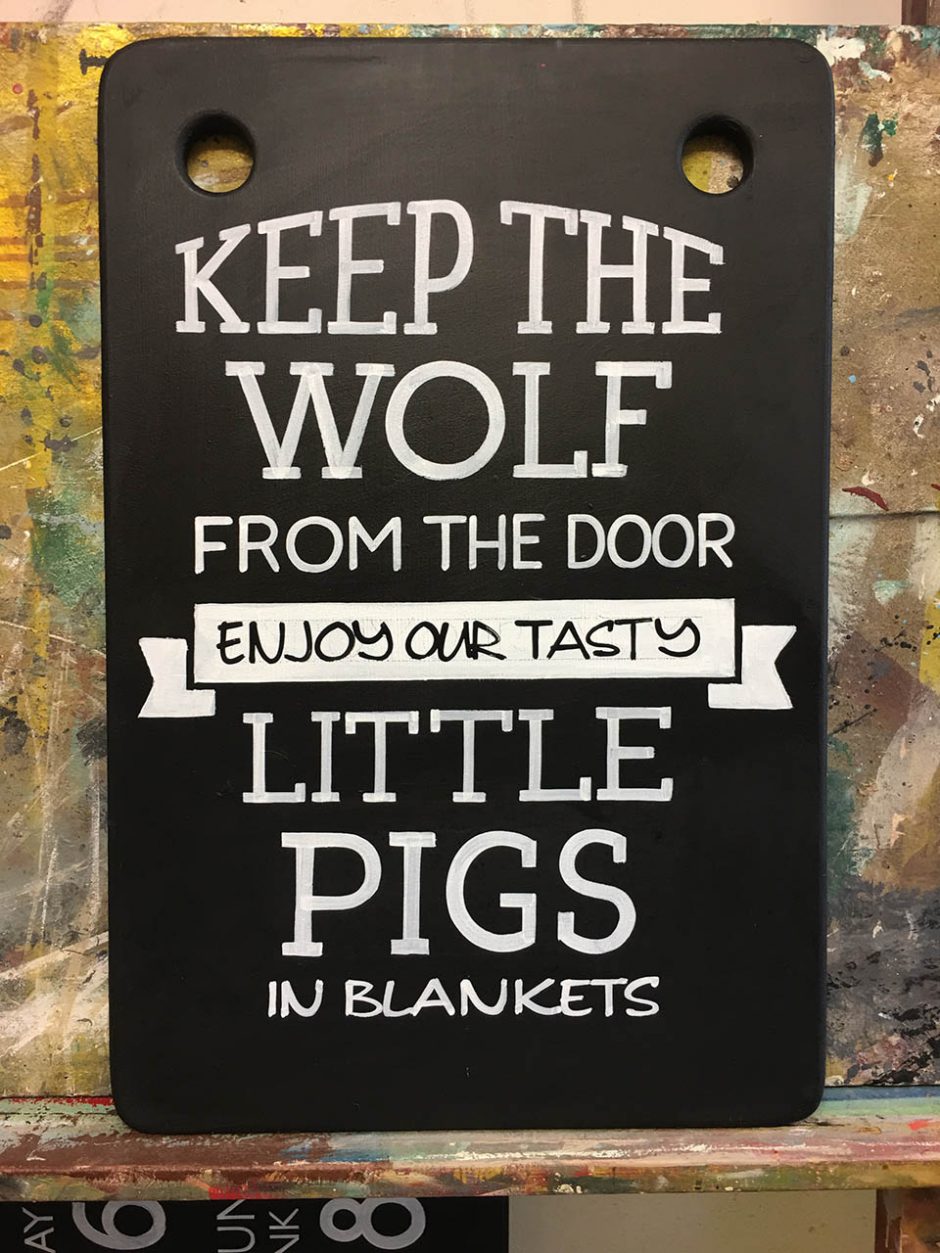 KEEP THE
WOLF
FROM THE DOOR
ENJOY OUR TASTY
LITTLE
PIGS
IN BLANKETS
AY
6
UN
NK
8